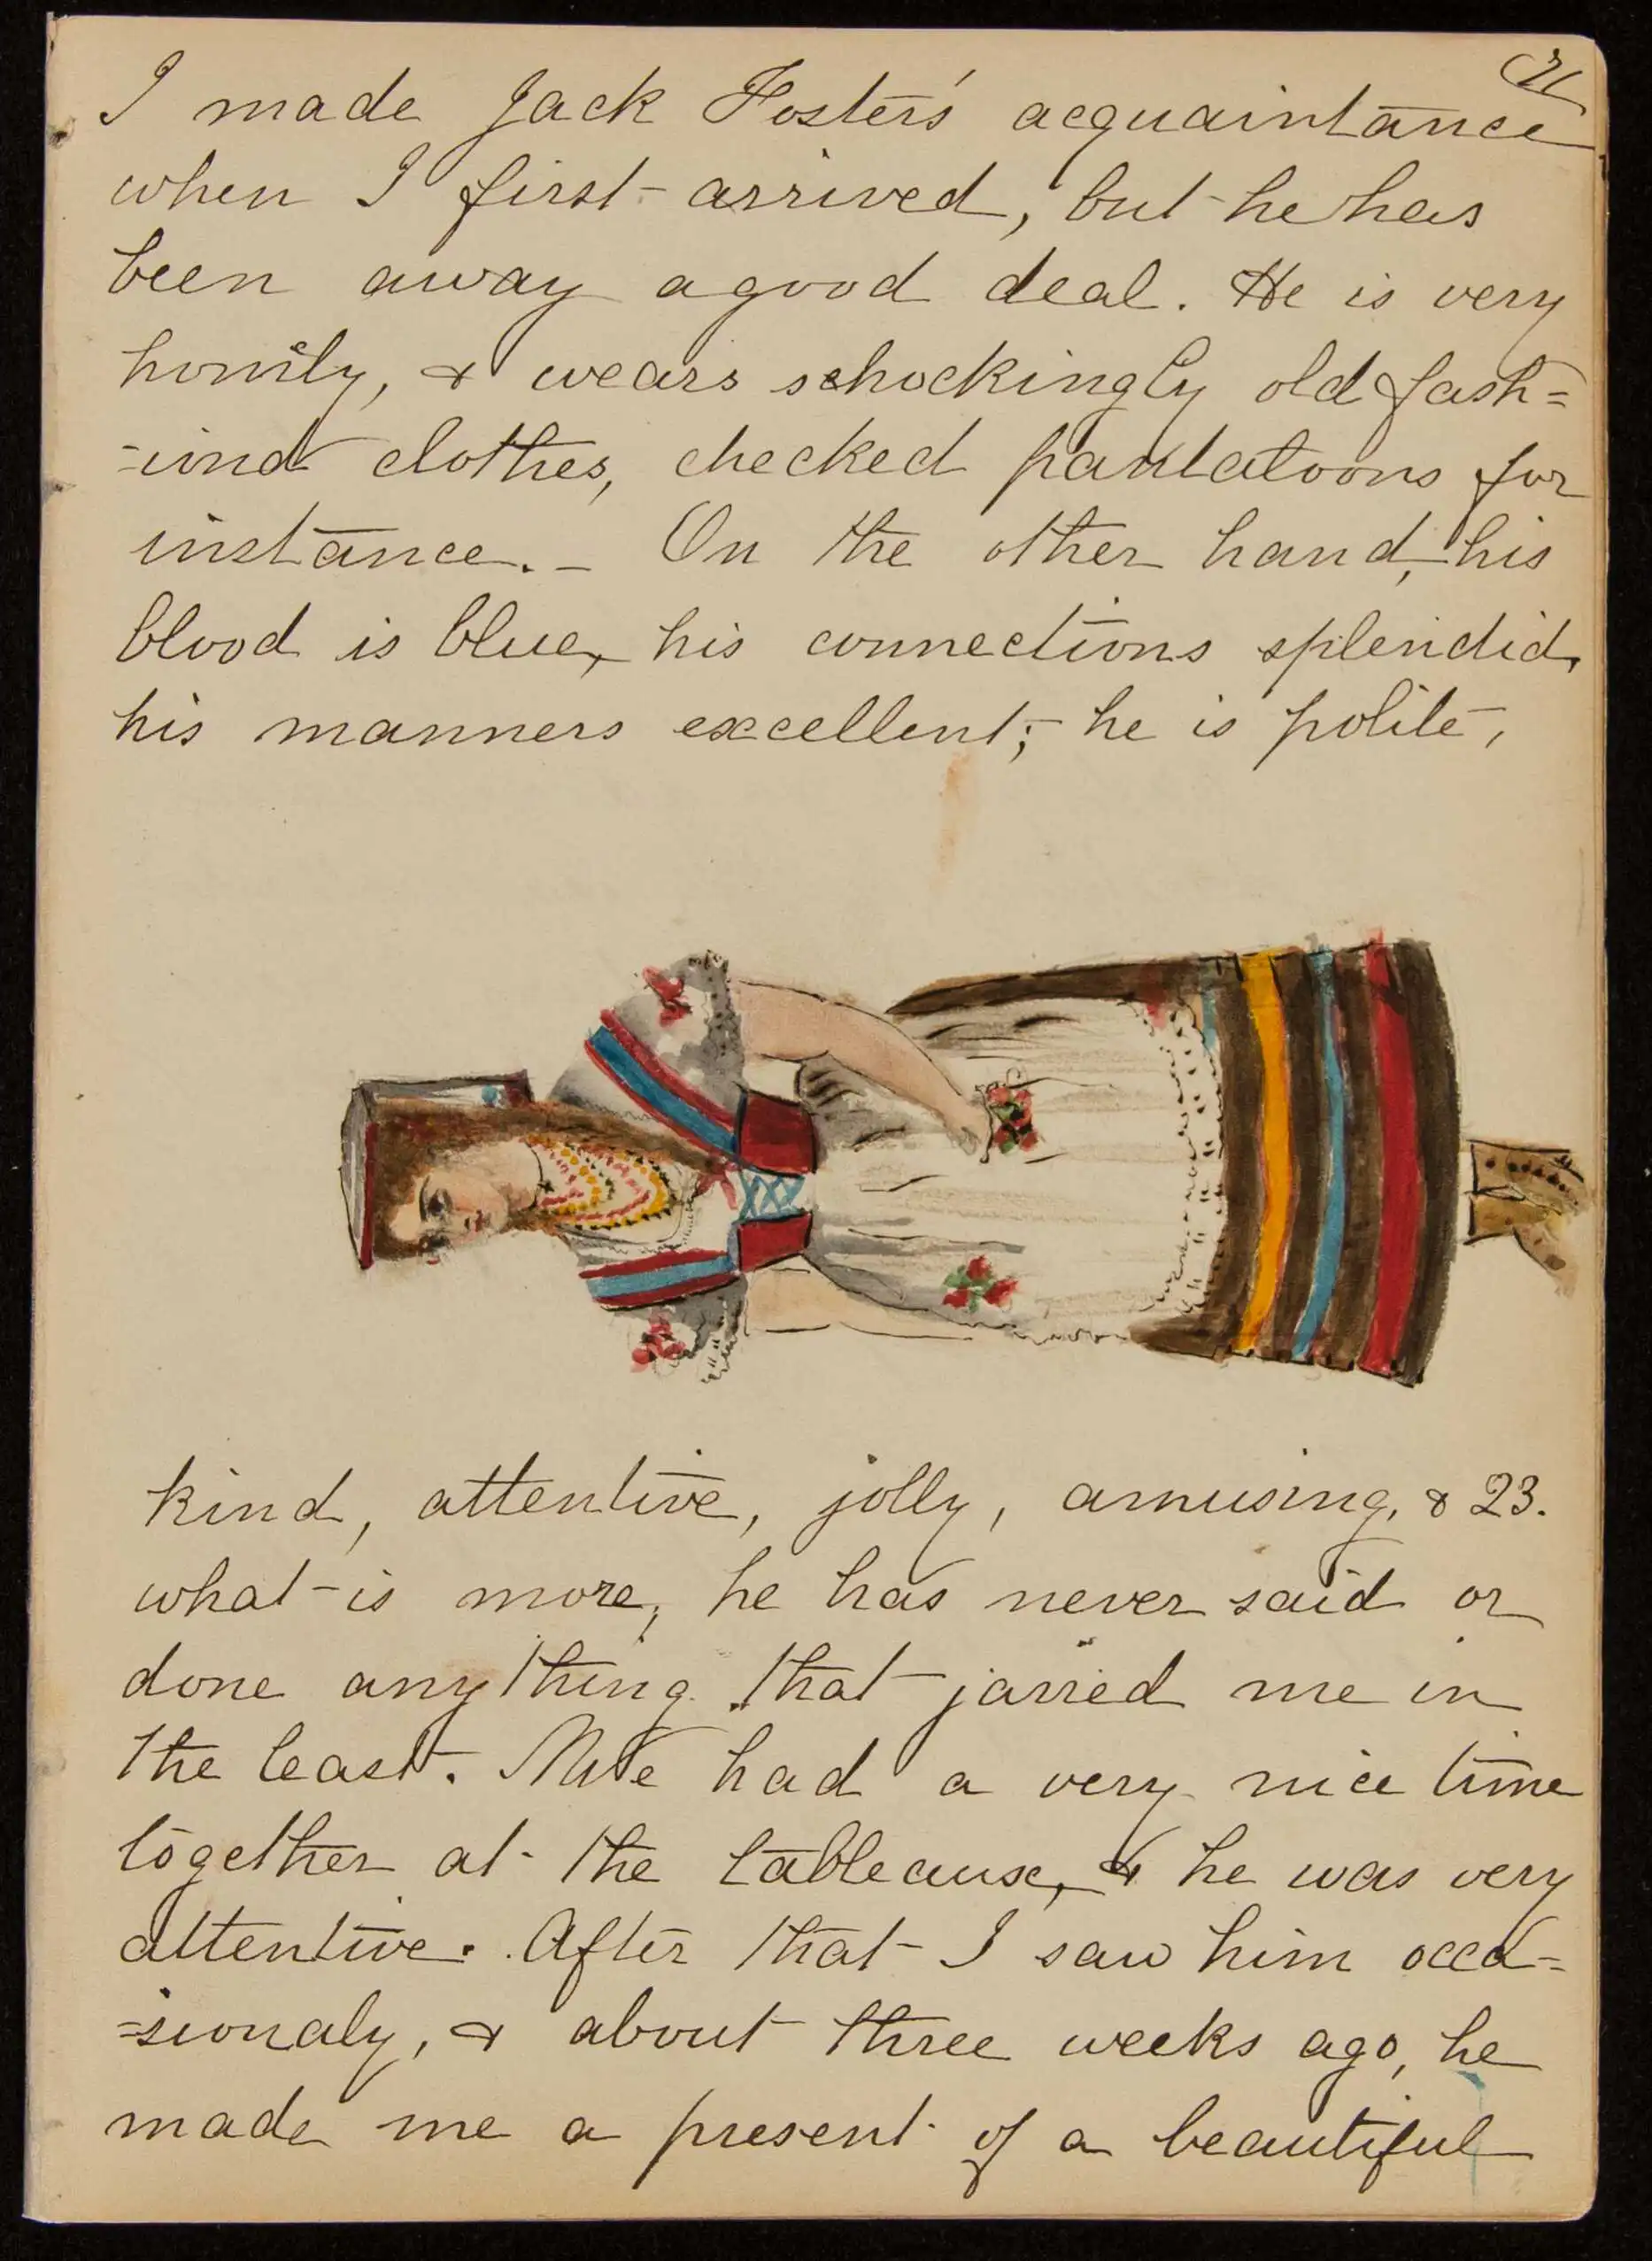 I made Jack Foster's acquaintance
when I first arrived, but he has
been away a good deal. He is very
homily, & wears schockingly old fash=
=iond clothes, checked pantatoons for
instance. – On the other hand, his
blood is blue, his connections splendid,
his manners excellent; he is polite,
kind, attentive, jolly, amusing, & 23.
what is more, he has never said or
done anything that jarred me in
the least. We had a very nice time
together at the tableaux, & he was very
attentive. After that I saw him occa=
=sionaly, & about three weeks ago, he
made me a present of a beautiful